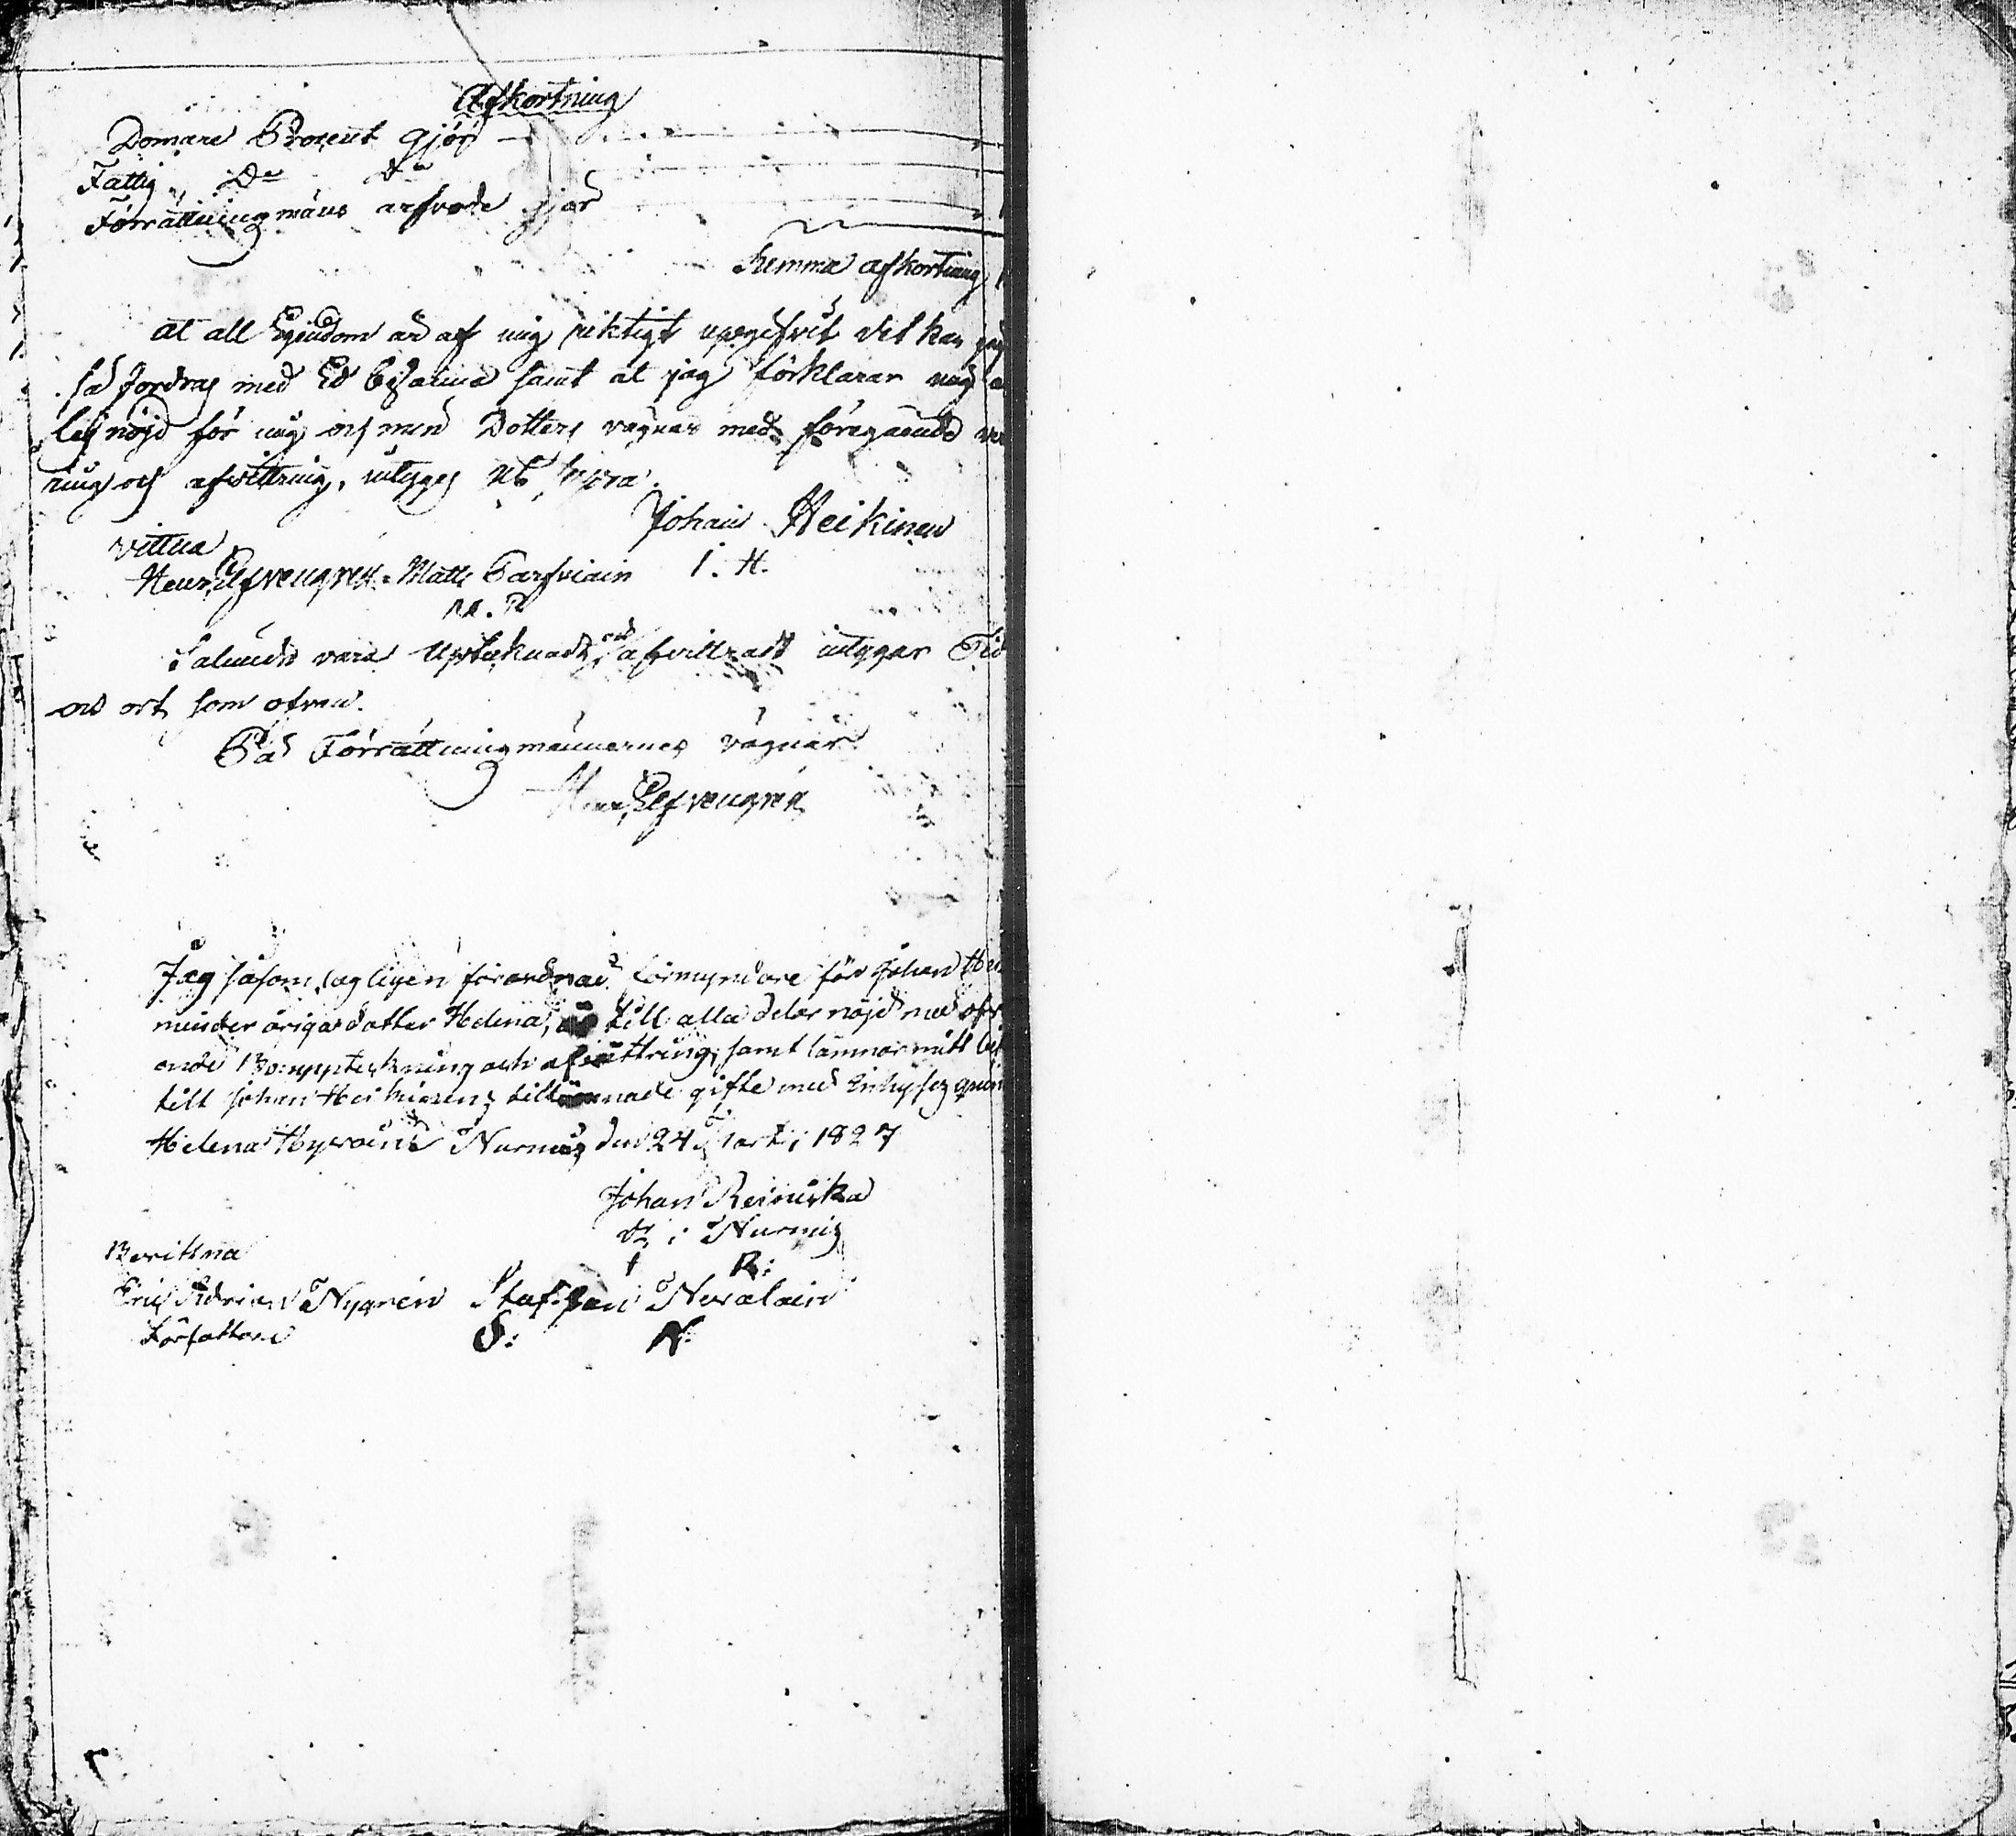 Afkortning
Domare Procent gjör
Fattig Do Do
Förrättningmäns arfvode gjör
Summa afkortning
at all Egendom är af mig riktigt upgifvit det kan jag
så fordras med Ed besanna samt at jag förklarar mig
nöjd för mig och min Dotters vägnar med föregående
ring och afvittring, intygas ut supra.
Johan Heikinen
vittna
I. H.
Henr Elfvengren Matts Parfviain
M. P
Salunda vara Uptecknadt och afvittradt intygar Tid
och ort som ofvan.
På Förrättningmännernes vägnar
Henr Elfvengren
Jag såsom lagligen förordnad förmyndare för Johan
minder åriga dotter Helena, är till alla delar nöjd med
ande Bouppteckning och afvittring, samt lämnar mitt
till Johan Heikinens tillämnade gifte med Inhyses
Helena Hyvöin Nurmis den 24 Martii 1827
Johan Reiniska
i Nurmis
I R:
Bevittna
Eric Adrian Nygrén Staffan Nevalain
författare S: N: